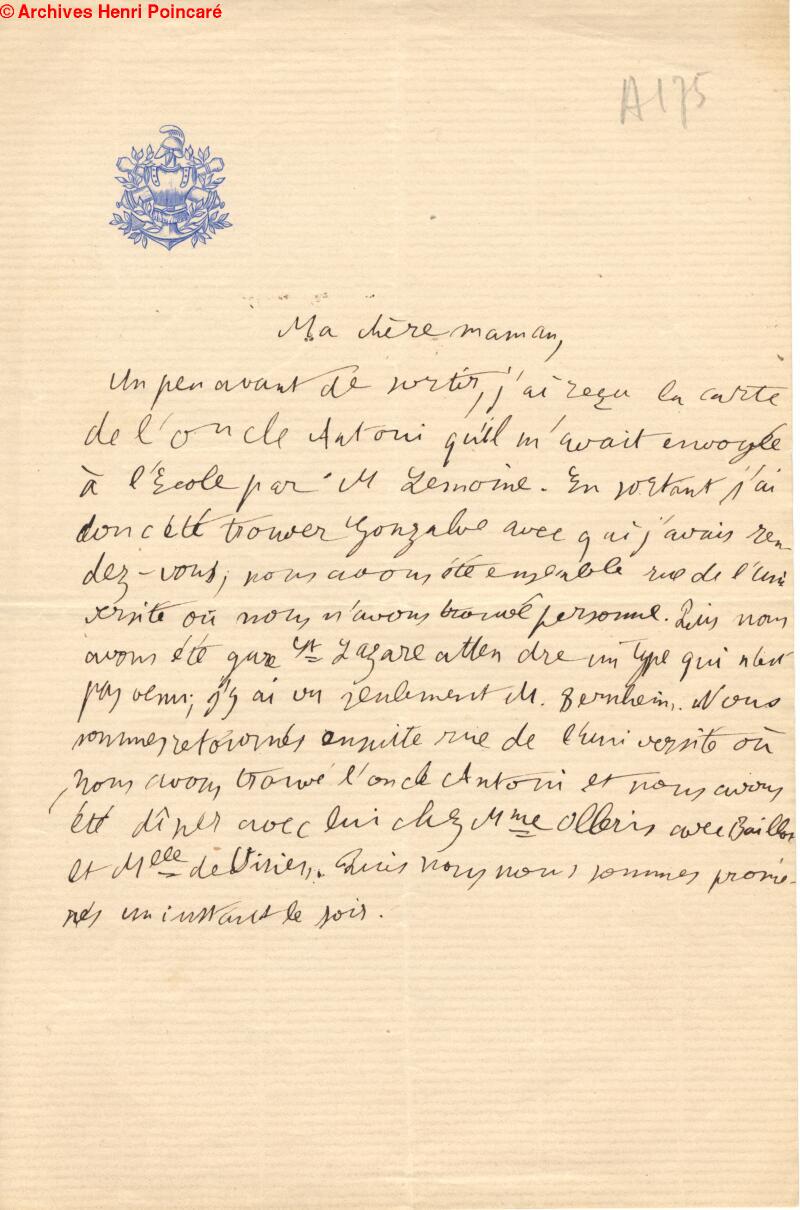 © Archives Henri Poincaré
A175
Ma chère maman,
Un peu avant de sortir, j'ai reçu la carte
de l'oncle Antoni qu'il m'avait envoyée
à l'Ecole par M Lemoine. En sortant j'ai
donc été trouver Gonzalve avec qui j'avais ren
dez-vous; nous avons été ensemble rue de l'uni
versité où nous n'avons trouvé personne. Puis nous
avons été gare St Lazare attendre un type qui n'est
pas venu; j'y ai vu seulement M. Bernheim. Nous
sommes retournés ensuite rue de l'université où
nous avons trouvé l'oncle Antoni et nous avons
été dîner avec lui chez Mme Olleris avec
et Melle de Puis nous nous sommes prome-
nés un instant le soir.